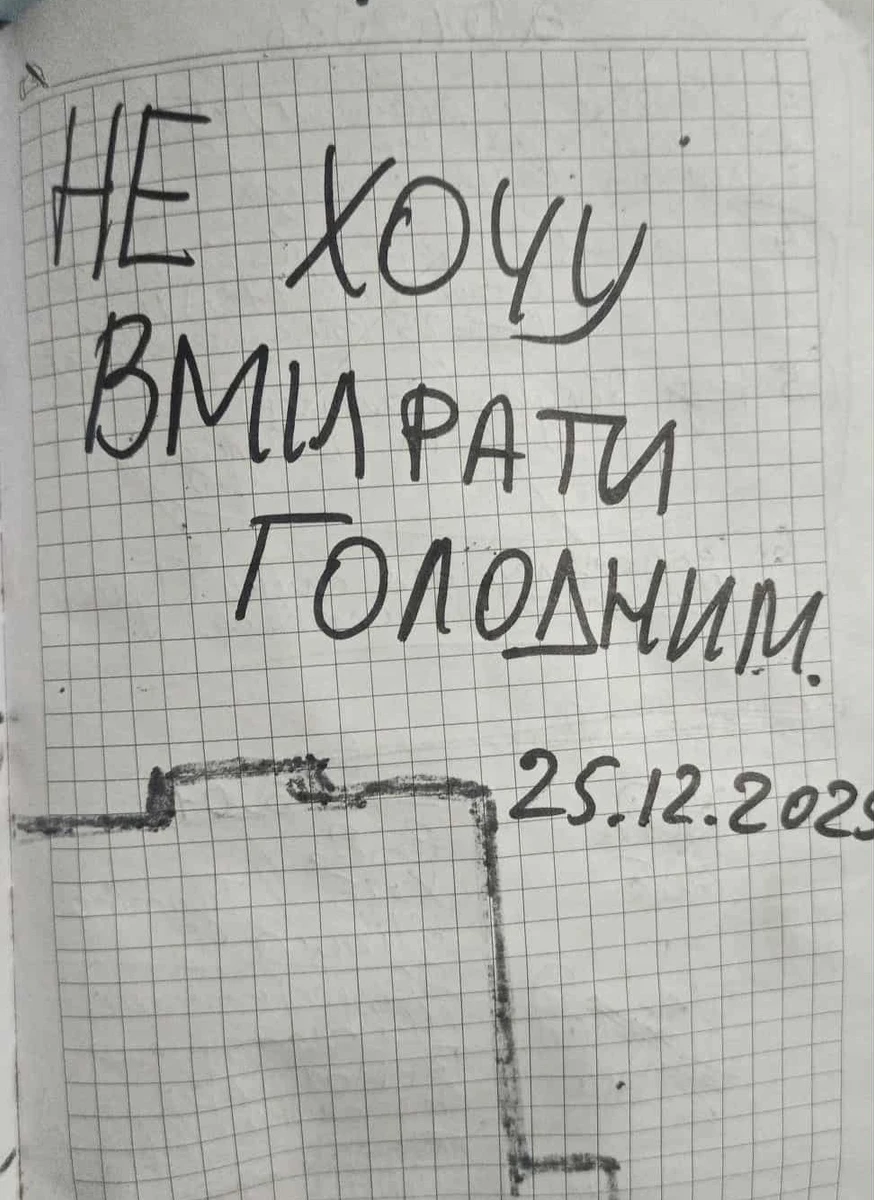 НЕ ХОЧУ
ВМИРАТИ
ГОЛОДНИМ.
25.12.2025